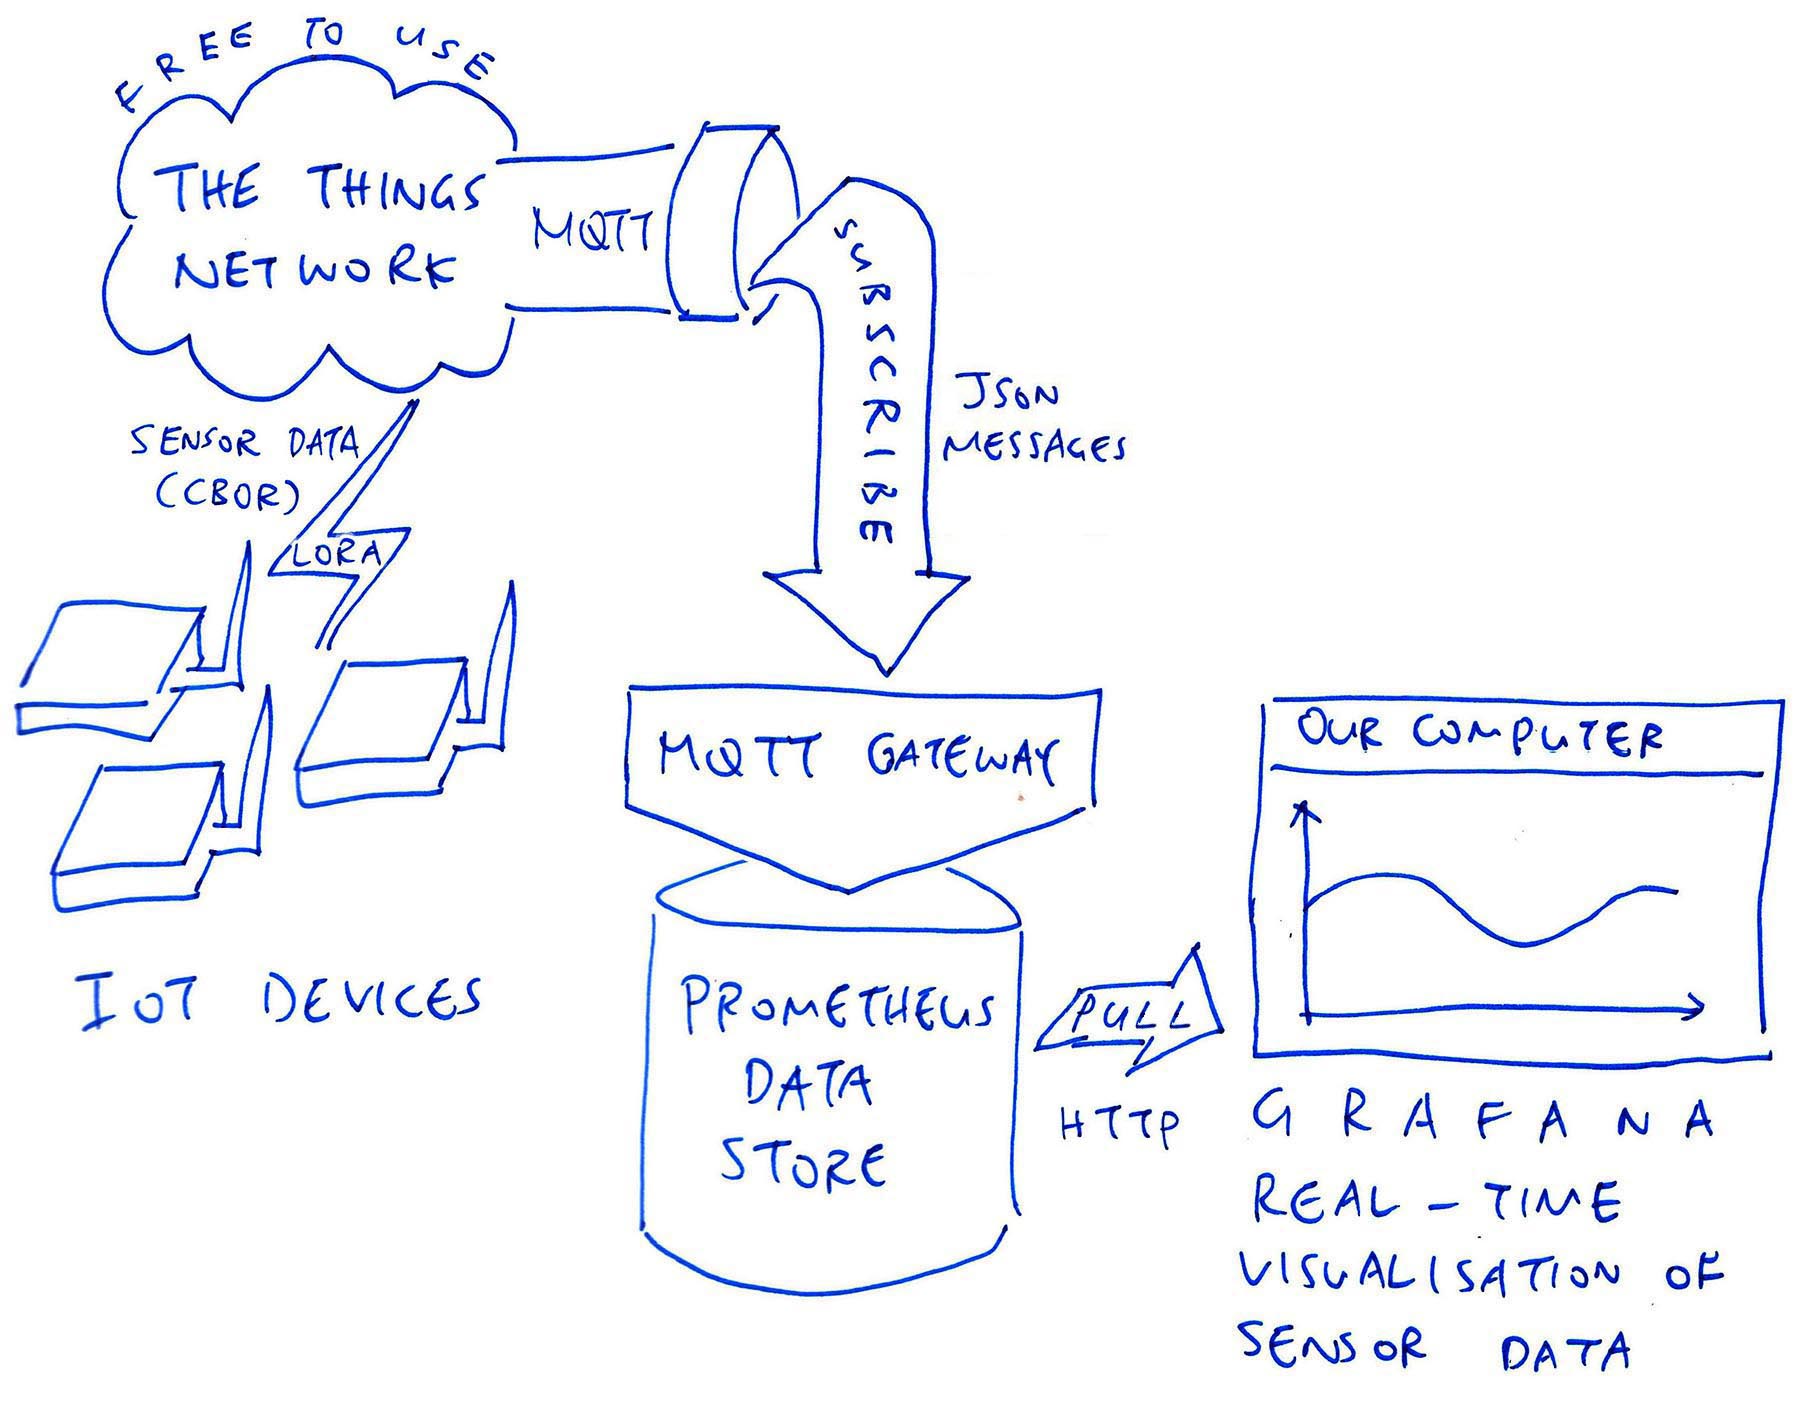 FREE TO USE
THE THINGS
NETWORK
MQTT
SUBSCRIBE
JSON
MESSAGES
SENSOR DATA
(CBOR)
LORA
IOT DEVICES
MQTT GATEWAY
PROMETHEUS
DATA
STORE
PULL
HTTP
OUR COMPUTER
GRAFANA
REAL-TIME
VISUALISATION OF
SENSOR DATA